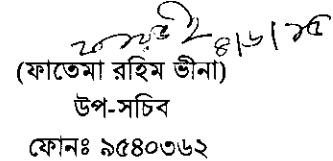 ৪/৬/১৫
(ফাতেমা রহিম ভীনা)
উপ-সচিব
ফোনঃ ৯৫৪০৩৬২